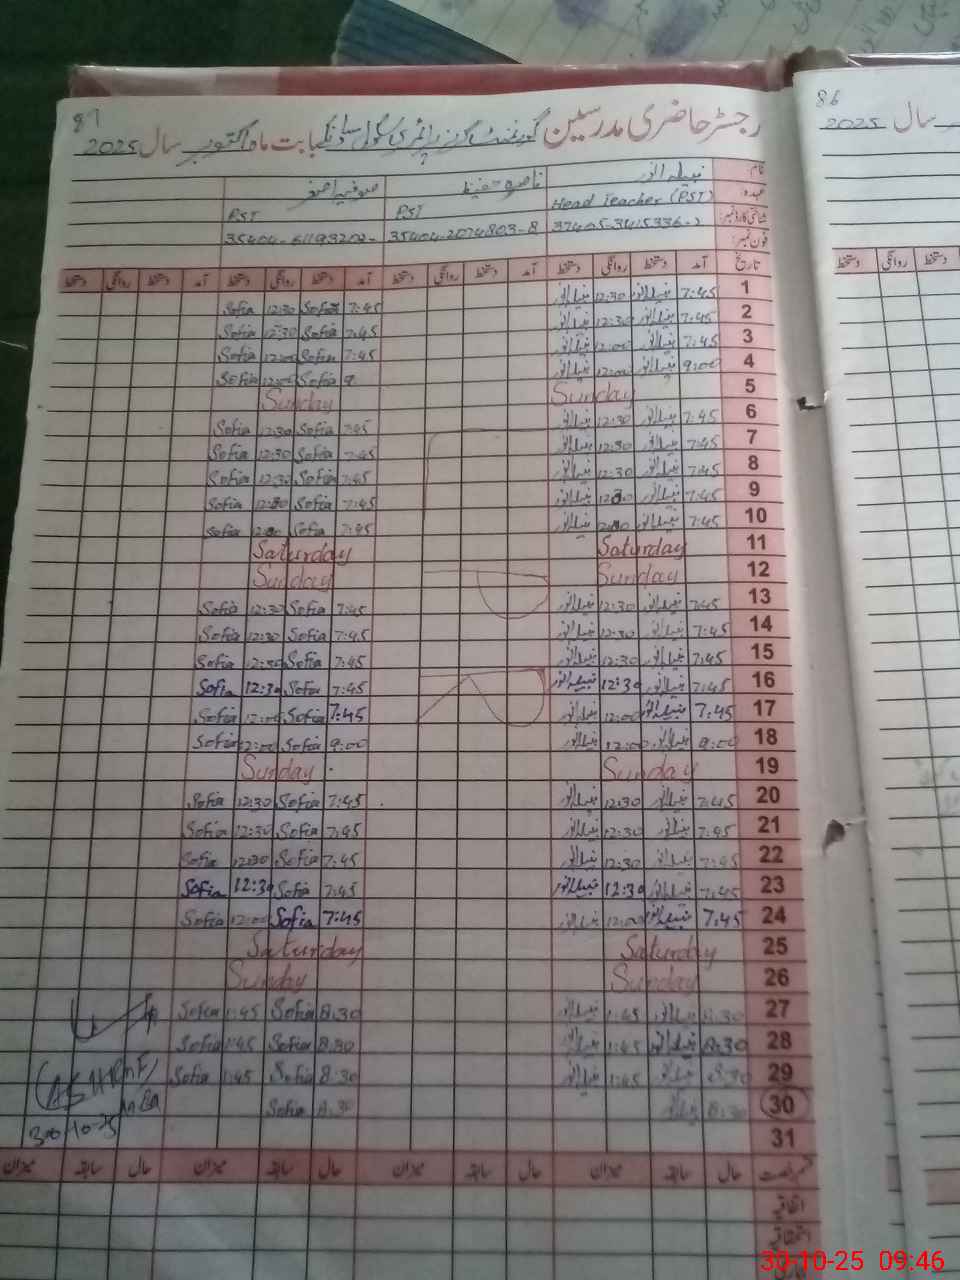 87
رجسٹر حاضری مدرسین گورنمنٹ گرلز پرائمری سکول بابت ماہ اکتوبر سال 2025
86
سال 2025
نام: نبیلہ انور ناصرہ حفیظ صوفیہ اصغر
عہدہ Head Teacher (PST) PST PST
شناختی کارڈ نمبر: 37405-3415336-2 35404-2074803-8 35404-61193202-
فون نمبر:
تاریخ آمد دستخط روانگی دستخط آمد دستخط روانگی دستخط آمد دستخط روانگی دستخط آمد دستخط روانگی دستخط
1 7:45 نبیلہ انور 12:30 نبیلہ انور 7:45 Sofia 12:30 Sofia
2 7:45 نبیلہ انور 12:30 نبیلہ انور 7:45 Sofia 12:30 Sofia
3 7:45 نبیلہ انور 12:00 نبیلہ انور 7:45 Sofia 12:00 Sofia
4 9:00 نبیلہ انور 12:00 نبیلہ انور 9 Sofia 12:00 Sofia
5 Sunday Sunday
6 7:45 نبیلہ انور 12:30 نبیلہ انور 7:45 Sofia 12:30 Sofia
7 7:45 نبیلہ انور 12:30 نبیلہ انور 7:45 Sofia 12:30 Sofia
8 7:45 نبیلہ انور 12:30 نبیلہ انور 7:45 Sofia 12:30 Sofia
9 7:45 نبیلہ انور نبیلہ انور 7:45 Sofia Sofia
10 7:45 نبیلہ انور نبیلہ انور 7:45 Sofia Sofia
11 Saturday Saturday
12 Sunday Sunday
13 7:45 نبیلہ انور 12:30 نبیلہ انور 7:45 Sofia 12:30 Sofia
14 7:45 نبیلہ انور 12:30 نبیلہ انور 7:45 Sofia 12:30 Sofia
15 7:45 نبیلہ انور 12:30 نبیلہ انور 7:45 Sofia 12:30 Sofia
16 7:45 نبیلہ انور 12:30 نبیلہ انور 7:45 Sofia 12:30 Sofia
17 7:45 نبیلہ انور 12:00 نبیلہ انور 7:45 Sofia 12:00 Sofia
18 9:00 نبیلہ انور 12:00 نبیلہ انور 9:00 Sofia 12:00 Sofia
19 Sunday Sunday
20 7:45 نبیلہ انور 12:30 نبیلہ انور 7:45 Sofia 12:30 Sofia
21 7:45 نبیلہ انور 12:30 نبیلہ انور 7:45 Sofia 12:30 Sofia
22 7:45 نبیلہ انور 12:30 نبیلہ انور 7:45 Sofia 12:30 Sofia
23 7:45 نبیلہ انور 12:30 نبیلہ انور 7:45 Sofia 12:30 Sofia
24 7:45 نبیلہ انور 12:00 نبیلہ انور 7:45 Sofia 12:00 Sofia
25 Saturday Saturday
26 Sunday Sunday
27 8:30 نبیلہ انور 1:45 نبیلہ انور 8:30 Sofia 1:45 Sofia
28 8:30 نبیلہ انور 1:45 نبیلہ انور 8:30 Sofia 1:45 Sofia
29 8:30 نبیلہ انور 1:45 نبیلہ انور 8:30 Sofia 1:45 Sofia
30 8:30 نبیلہ انور 8:30 Sofia
30-10-25
31
حال سابقہ میزان حال سابقہ میزان حال سابقہ میزان حال سابقہ میزان
اتفاقیہ
استحقاقیہ
30-10-25 09:46